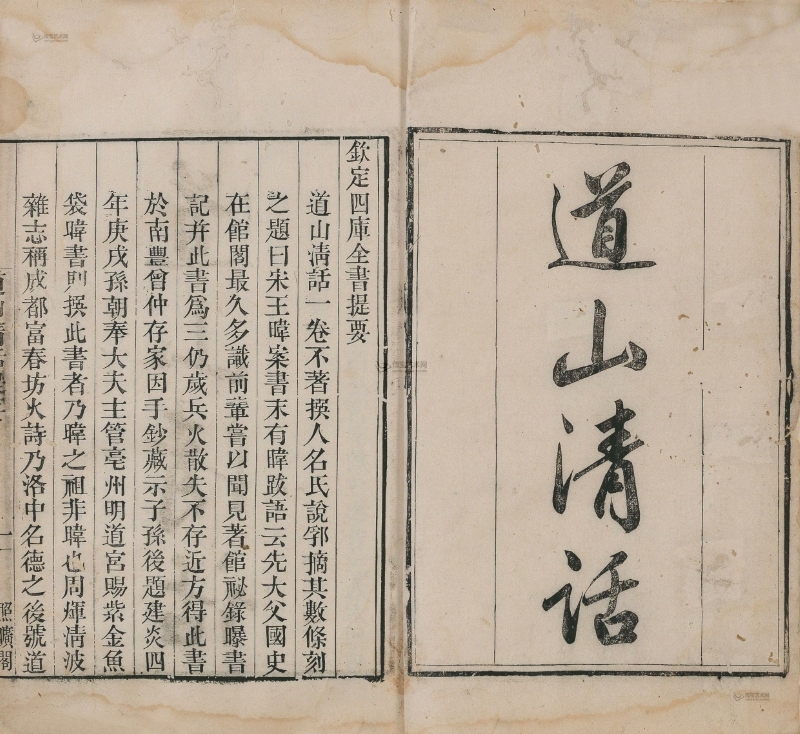 道山清話
欽定四庫全書提要
道山清話一卷不著撰人名氏說郛摘其數條刻
之題曰宋王暐案書末有暐跋語云先大父國史
在館閣最久多識前輩嘗以聞見著館祕錄曝書
記并此書爲三仍歲兵火散失不存近方得此書
於南豐曾仲存家因手鈔藏示子孫後題建炎四
年庚戌孫朝奉大夫主管亳州明道宮賜紫金魚
袋暐書則撰此書者乃暐之祖非暐也周煇清波
雜志稱成都富春坊火詩乃洛中名德之後號道
照曠閣